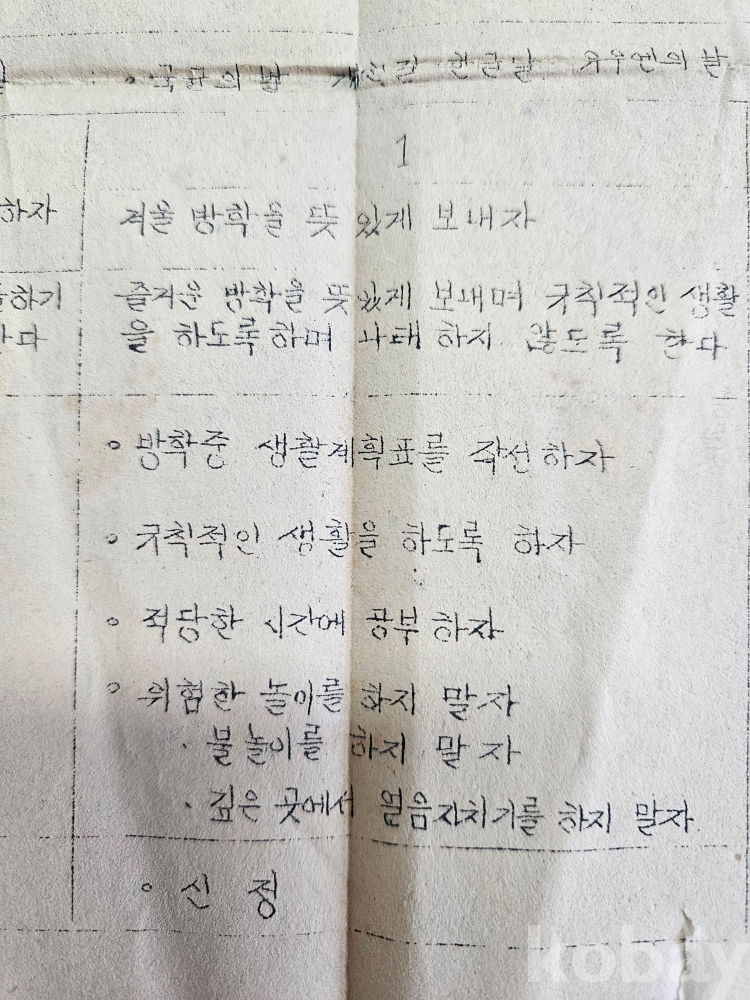 의날 한글날 유우엔의날
1
하자
겨울 방학을 뜻 있게 보내자
하기
즐거운 방학을 뜻있게 보내며 규칙적인 생활
을 하도록하며 나태 하지 않도록 한다
◦ 방학중 생활계획표를 작선하자
◦ 규칙적인 생활을 하도록 하자
◦ 적당한 시간에 공부 하자
◦ 위험한 놀이를 하지 말자
· 물놀이를 하지 말 자
· 깊은 곳에서 얼음지치기를 하지 말자
◦ 신 정
kobay